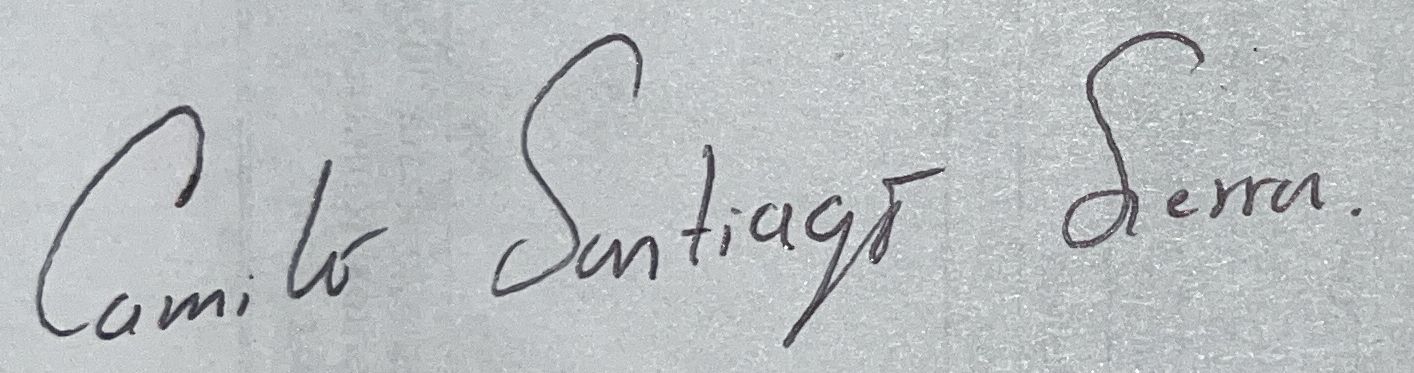 Camilo Santiago Sierra.